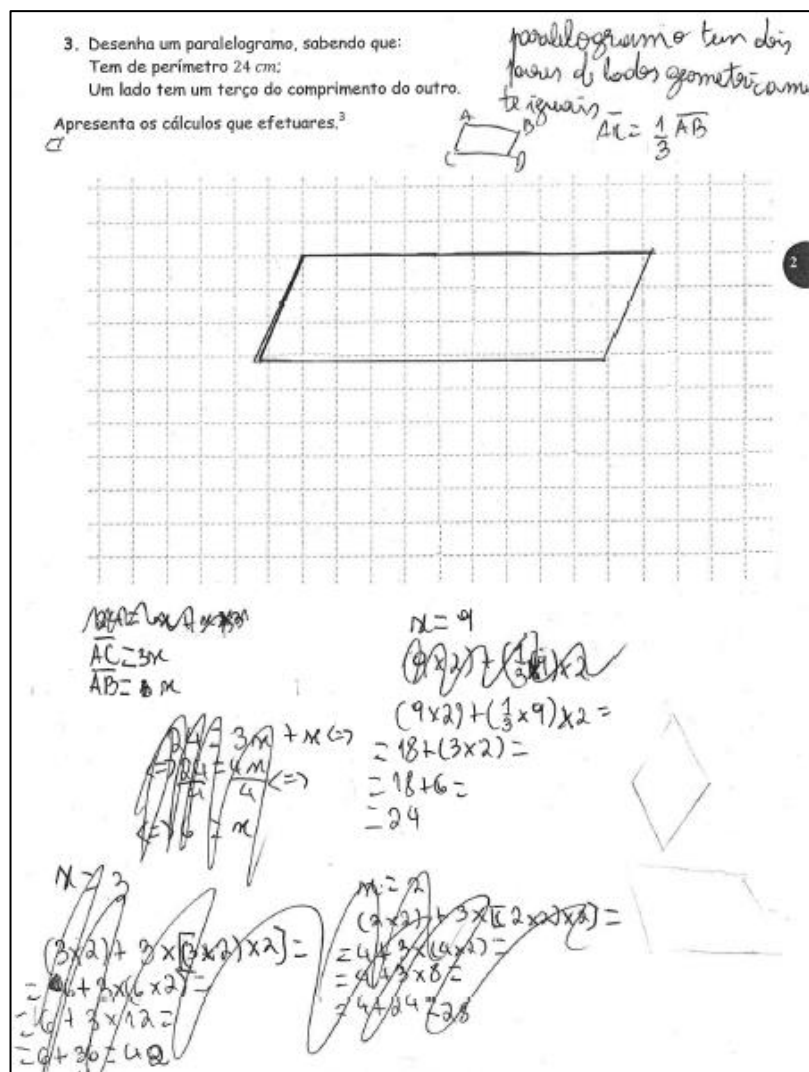 3. Desenha um paralelogramo, sabendo que:
Tem de perímetro 24 cm;
Um lado tem um terço do comprimento do outro.
Apresenta os cálculos que efetuares.³
paralelogramo tem dois
pares de lados geometricame
te iguais
A
B
C
D
= 1/3 AB
2
AC = 3x
AB = x
24 = 3x + x <=>
<=> 24/4 = 4x/4 <=>
<=> 6 = x
x = 9
(9x2) + (1/3 x 9) x 2 =
= 18 + (3x2) =
= 18 + 6 =
= 24
x = 3
(3x2) + 3x[(3x2)x2] =
= 6 + 3x(6x2) =
= 6 + 3x12 =
= 6 + 36 = 42
x = 2
(2x2) + 3x[(2x2)x2] =
= 4 + 3x(4x2) =
= 4 + 3x8 =
= 4 + 24 = 28